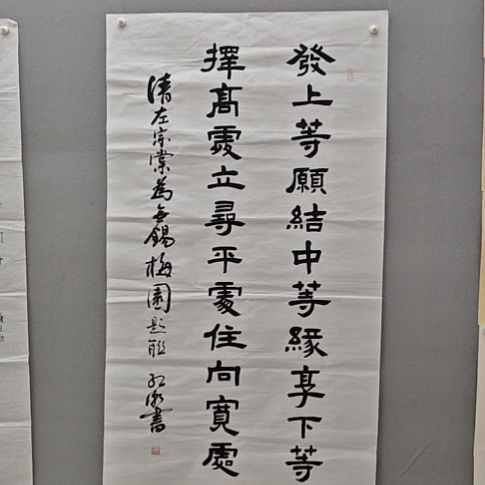 發上等願結中等緣享下等
擇高處立尋平處住向寬處
清左宗棠為無錫梅園題聯 書